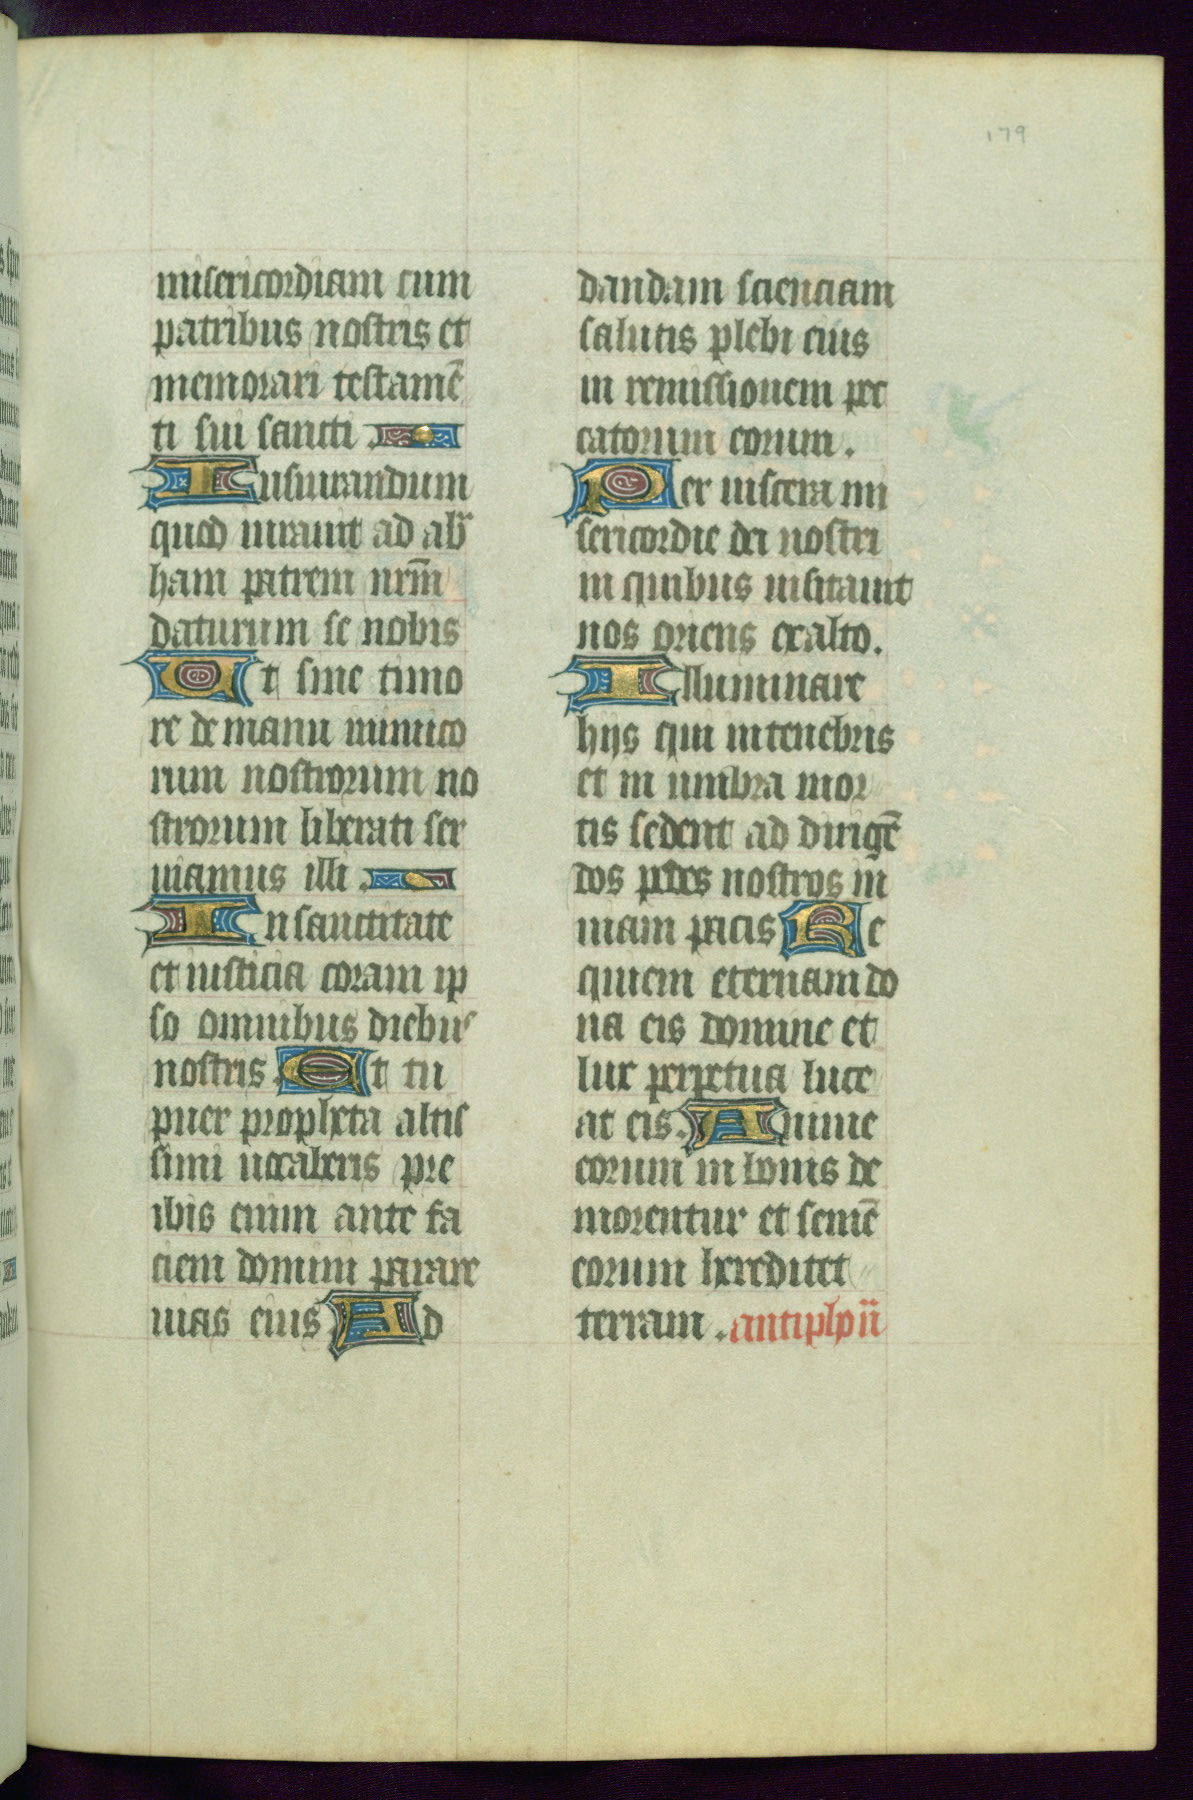 179
misericordiam cum
patribus nostris et
memorari testamē
ti sui sancti.
Iusiurandum
quod iurauit ad abr
ham patrem nrm̄
daturum se nobis
Ut sine timo
re de manu inimico
rum nostrorum no
strorum liberati ser
uiamus illi.
In sanctitate
et iusticia coram ip
so omnibus diebus
nostris. Et tu
puer propheta altis
simi uocaberis pre
ibis enim ante fa
ciem domini parare
uias eius Ad
dandam scienciam
salutis plebi eius
in remissionem pec
catorum eorum.
Per uiscera mi
sericordie dei nostri
in quibus uisitauit
nos oriens exalto.
Illuminare
hijs qui in tenebris
et in umbra mor
tis sedent ad dirigē
dos pedes nostros in
uiam pacis Re
quiem eternam do
na eis domine et
lux perpetua luce
at eis. Anime
eorum in bonis de
morentur et semē
eorum hereditet
terram. antiph̄